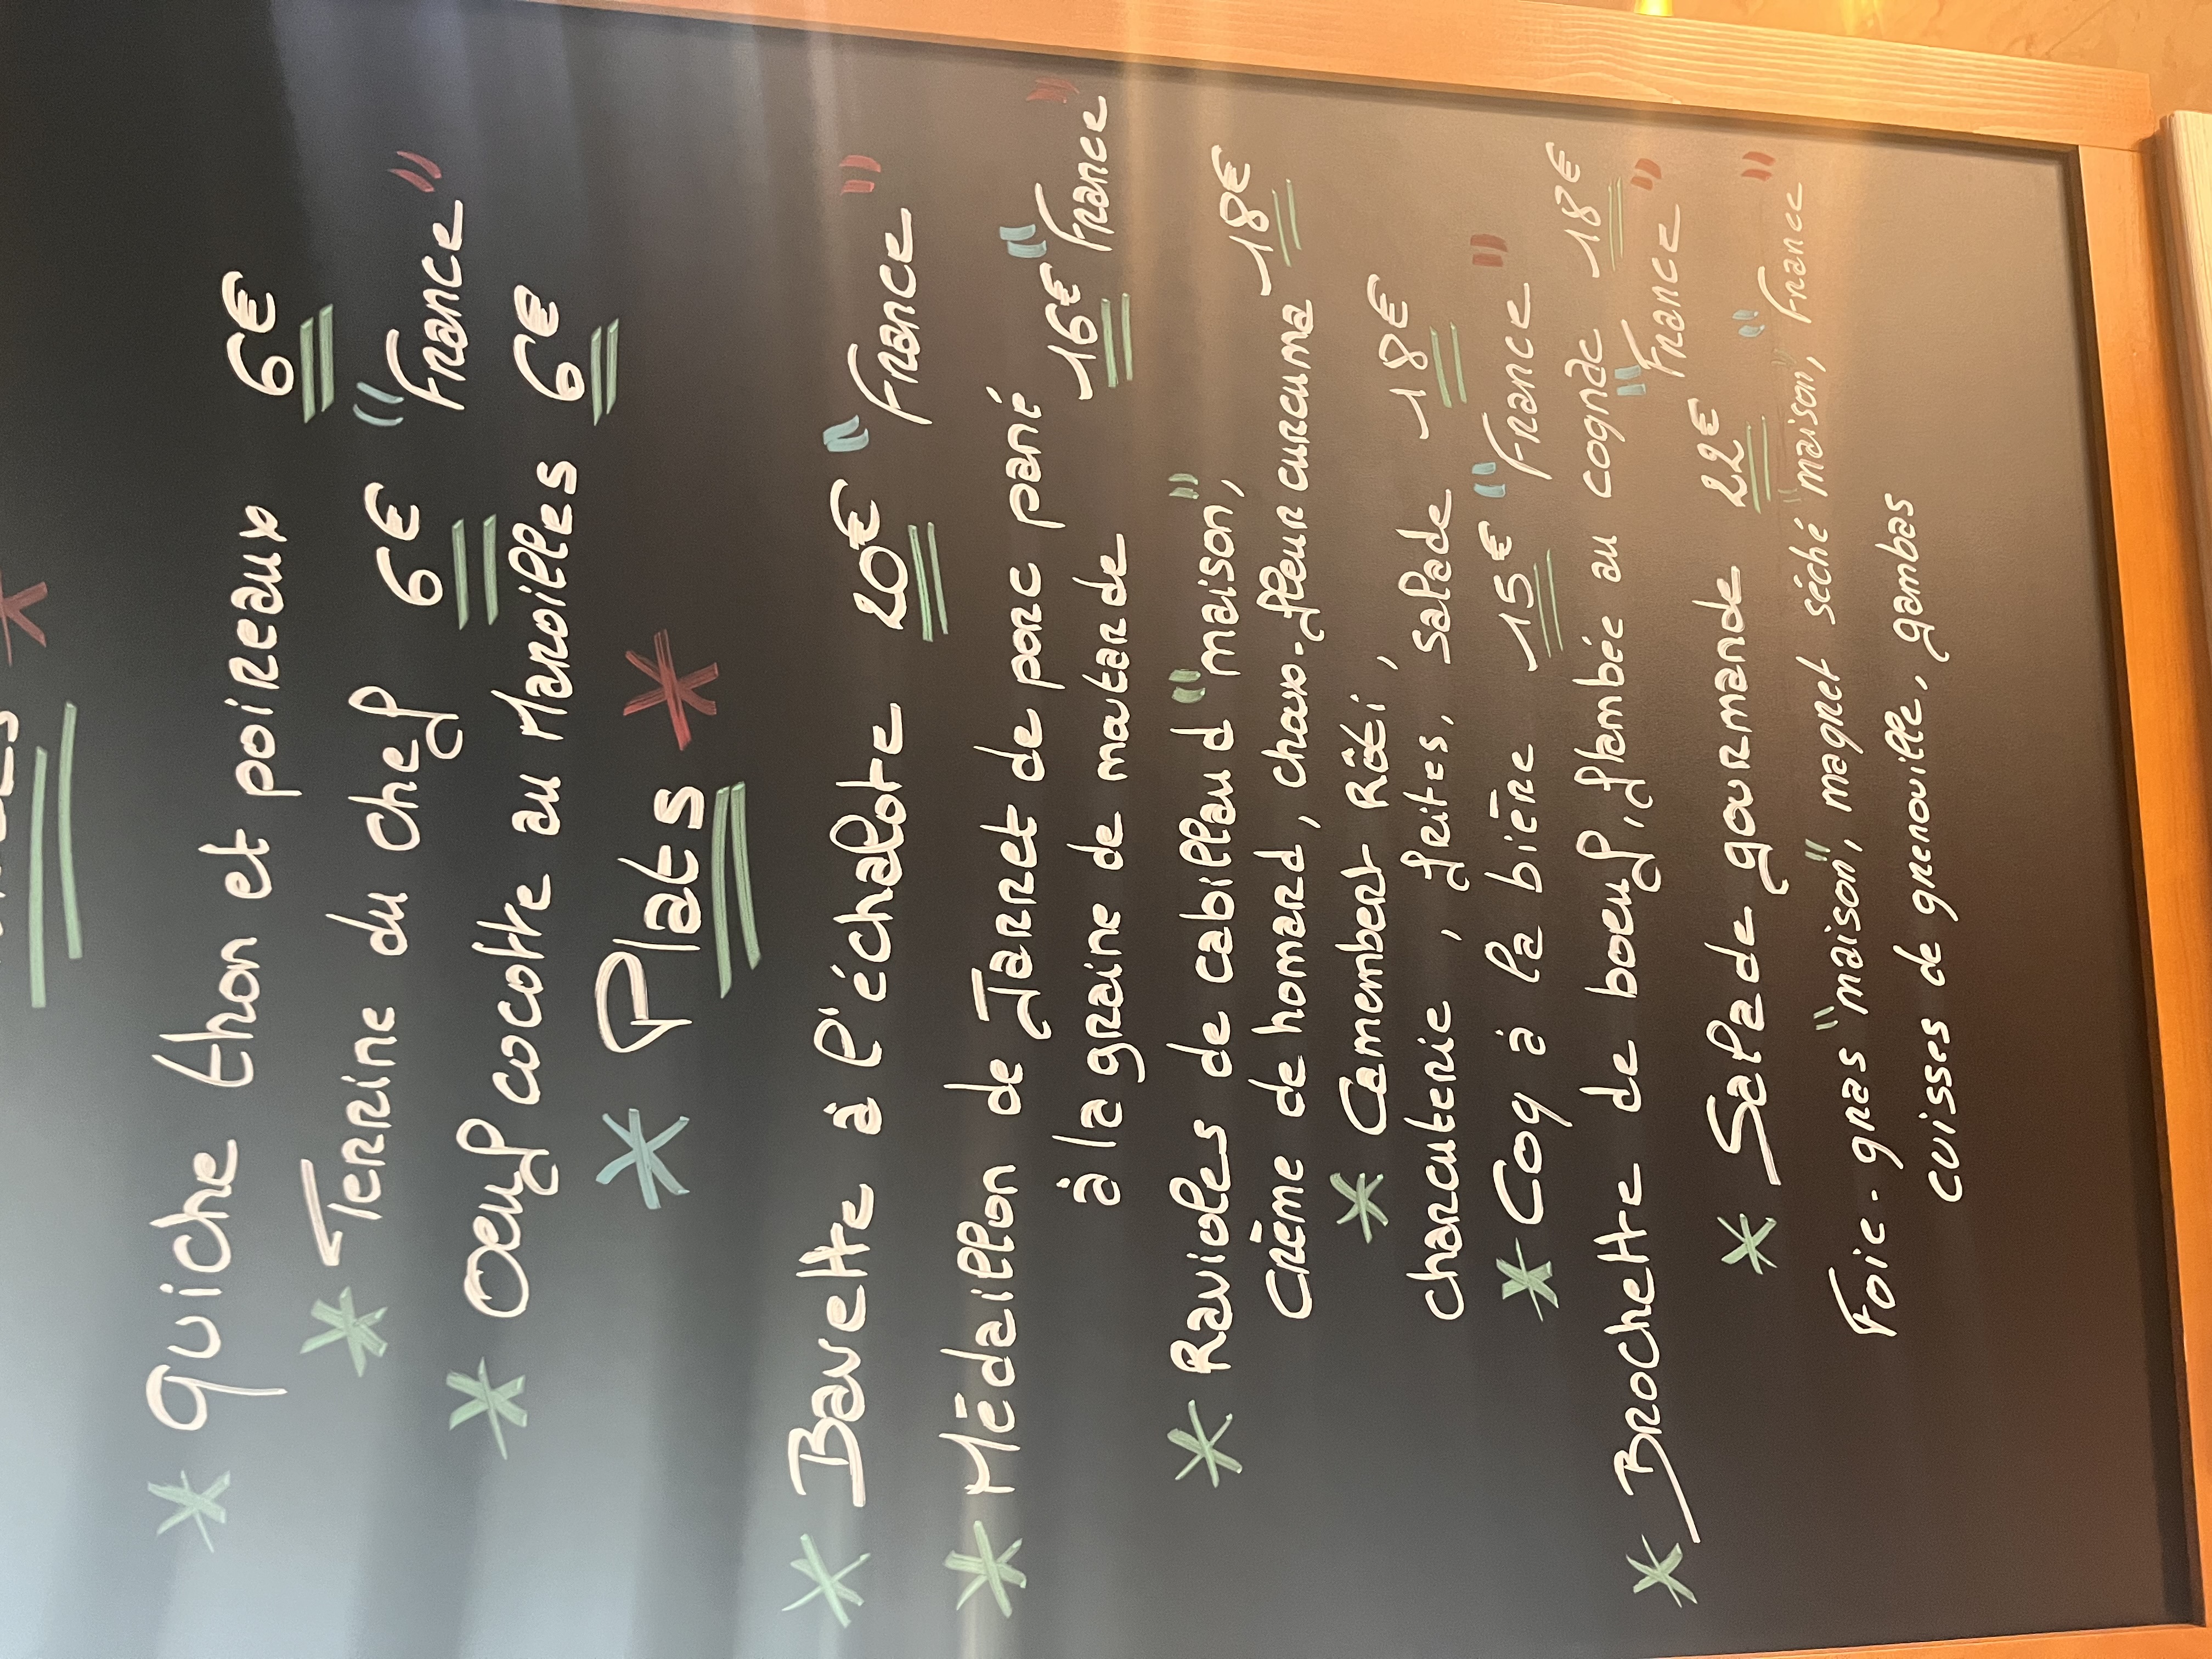 * Quiche thon et poireaux 6€
* Terrine du chef 6€ "France"
* Oeuf cocotte au Maroilles 6€
* Plats *
* Bavette à l'échalote 20€ "France"
* Médaillon de Jarret de porc pané
à la graine de moutarde 16€ "France"
* Ravioles de cabillaud "maison",
crème de homard, choux-fleur curcuma 18€
* Camembert Rôti,
charcuterie, frites, salade 18€
* Coq à la bière 15€ "France"
* Brochette de boeuf, flambée au cognac 18€
"France"
* Salade gourmande 22€
Foie-gras "maison", magret séché "maison", "France"
cuisses de grenouille, gambas